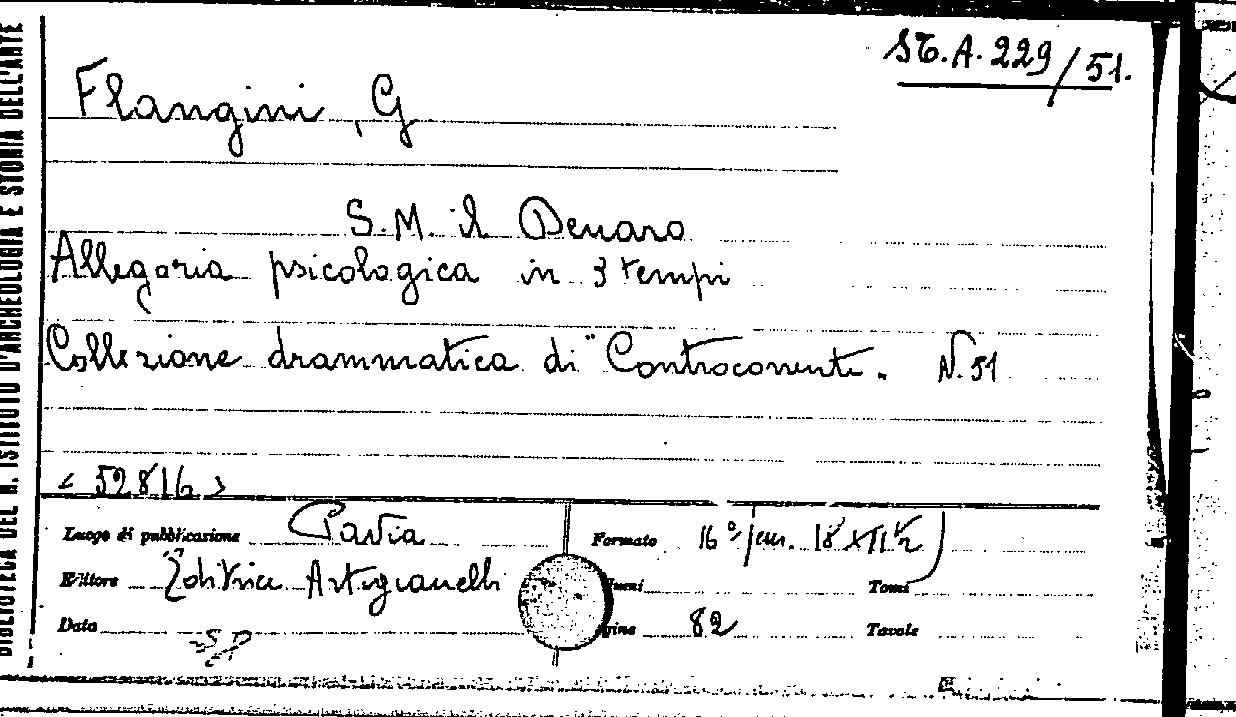 BIBLIOTECA DEL R. ISTITUTO D'ARCHEOLOGIA E STORIA DELL'ARTE
ST.A.229/51.
Flangini, G
S.M. il Denaro
Allegoria psicologica in 3 tempi
Collezione drammatica di "Controcorrente" N.51
<52816>
Luogo di pubblicazione Pavia
Formato 16°
Editore Editrice Artigianelli
Tomi
Data
gine 82
Tavole